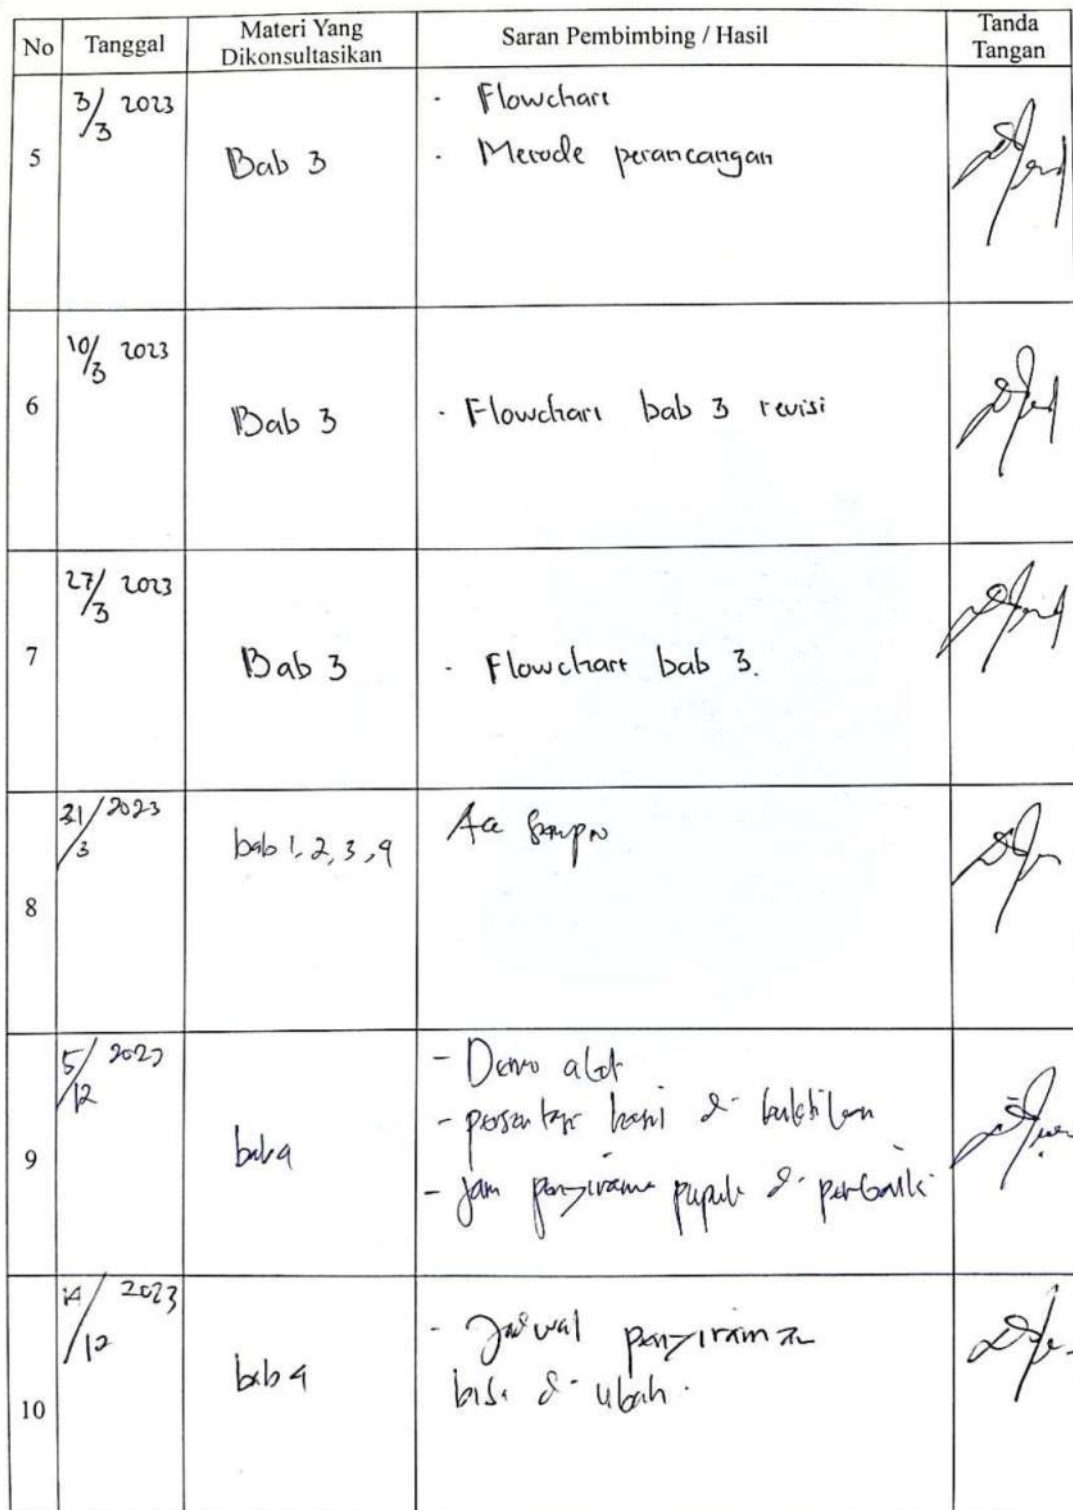 No Tanggal Materi Yang Dikonsultasikan Saran Pembimbing / Hasil Tanda Tangan
5 3/3 2023 Bab 3 - Flowchart
- Metode perancangan
6 10/3 2023 Bab 3 - Flowchart bab 3 revisi
7 27/3 2023 Bab 3 - Flowchart bab 3.
8 31/3 2023 bab 1, 2, 3, 4 Acc
9 5/12 2023 bab 4 - Demo alat
- persentasi hasil di buktikan
- jam penyiraman pupuk di perbaiki
10 14/12 2023 bab 4 - Jadwal penyiraman
bisa di ubah.